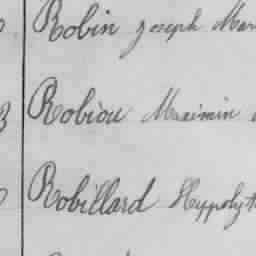 Robin Joseph Mar
Robiou Maximin
Robillard Hyppolyt